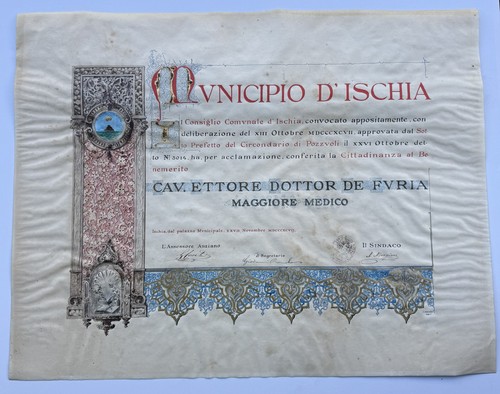 MVNICIPIO D'ISCHIA
Il Consiglio Comvnale d'Ischia, convocato appositamente, con
deliberazione del XIII Ottobre MDCCCXCVII approvata dal Sot
to Prefetto del Circondario di Pozzvoli il XXVI Ottobre det
to Nº 5018, ha, per acclamazione, conferita la Cittadinanza al Be
nemerito
CAV. ETTORE DOTTOR DE FVRIA
MAGGIORE MEDICO
Ischia, dal palazzo Municipale, XXVII Novembre MDCCCXCVII
L'Assessore Anziano
Il Segretario
Il Sindaco